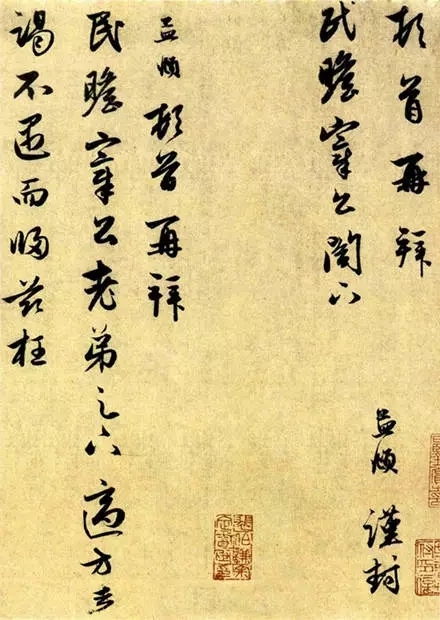 頓首再拜
孟頫 謹封
民瞻宰公閣下
孟頫頓首再拜
民瞻宰公老弟足下適方走
謁不遇而歸茲枉